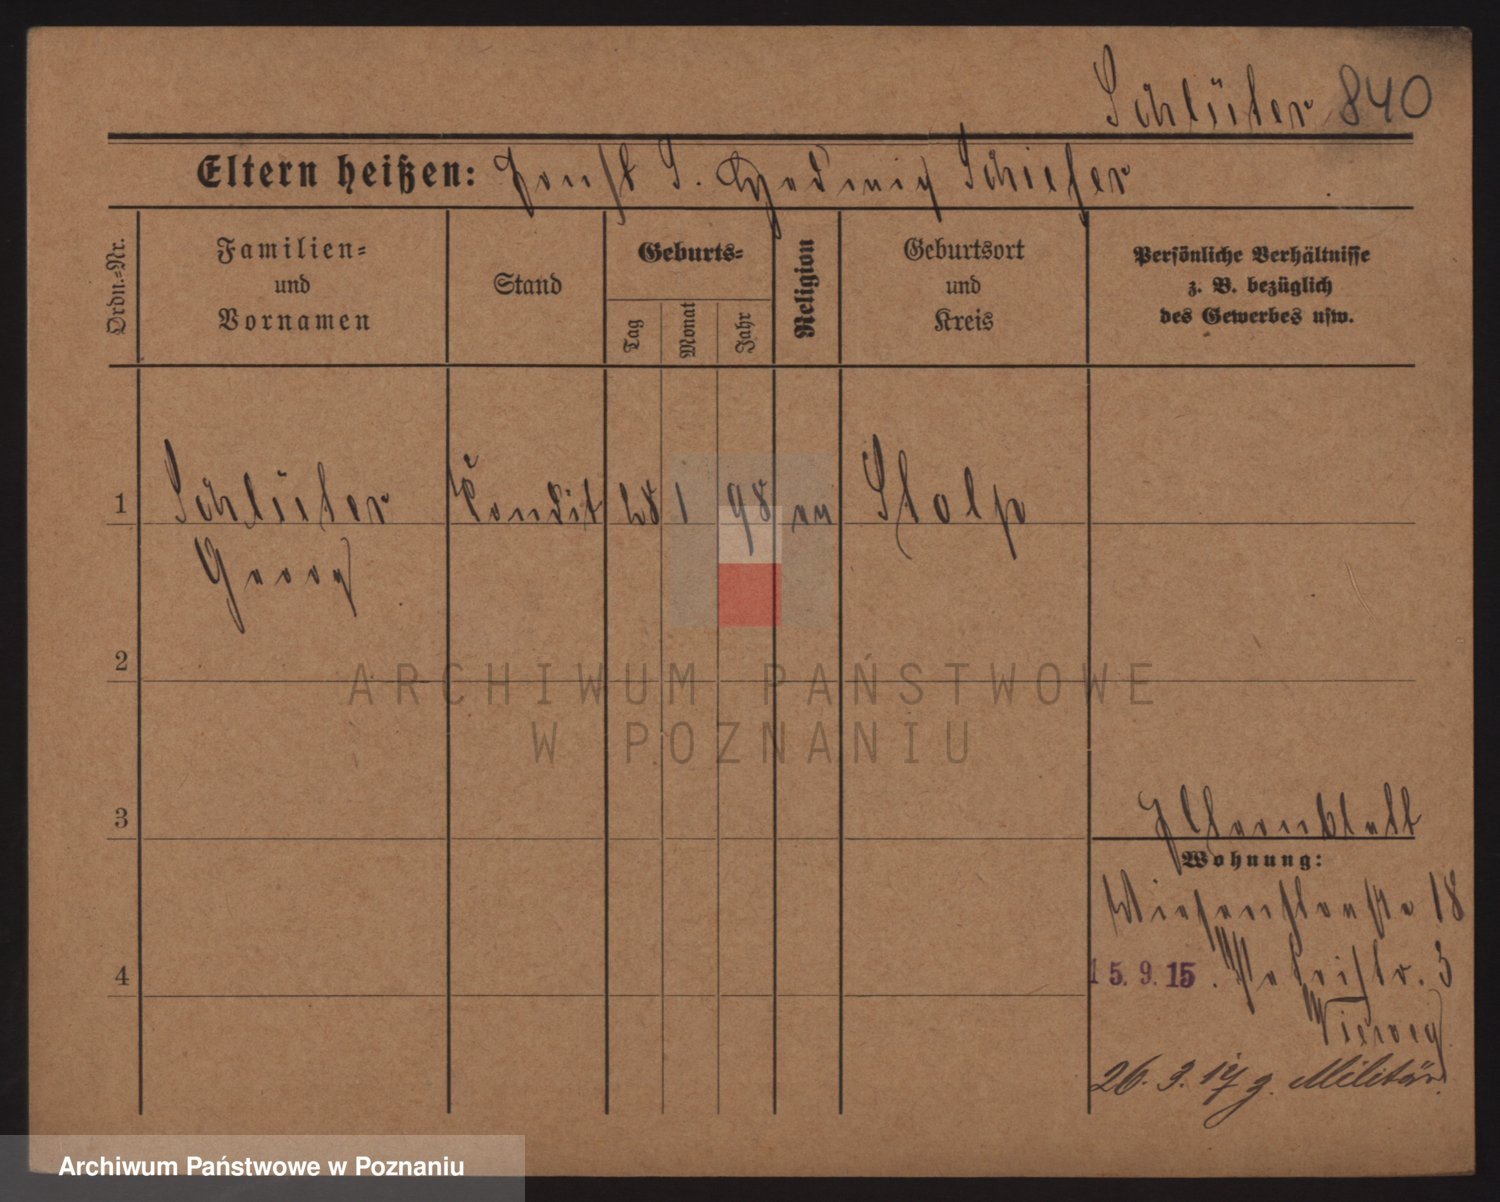 Schlüter 840
Eltern heißen: Ernst S. Hedwig Schiefer
Ordn.-Nr.
Familien-
und
Vornamen
Stand
Geburts-
Tag
Monat
Jahr
Religion
Geburtsort
und
Kreis
Persönliche Verhältnisse
z. B. bezüglich
des Gewerbes usw.
1 Schlüter Kondit 28 1 98 ev Stolp
Georg
2
ARCHIWUM PAŃSTWOWE
W POZNANIU
3
Wohnung:
Wiesenstraße 18
4
15.9.15. Petristr. 3
26. 3. 17 z. Militär
Archiwum Państwowe w Poznaniu